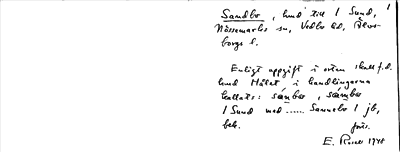 Sandbo, hmd till 1 Sund,
Nössemarks sn, Vedbo hd, Älvs-
borgs l.
Enligt uppgift i orten skall f.d.
hmd Målat i handlingarna
kallats: sambo, sambo
1 Sund med ..... Sannebo 1 jb,
beb. förs.
E. Rosell 1940